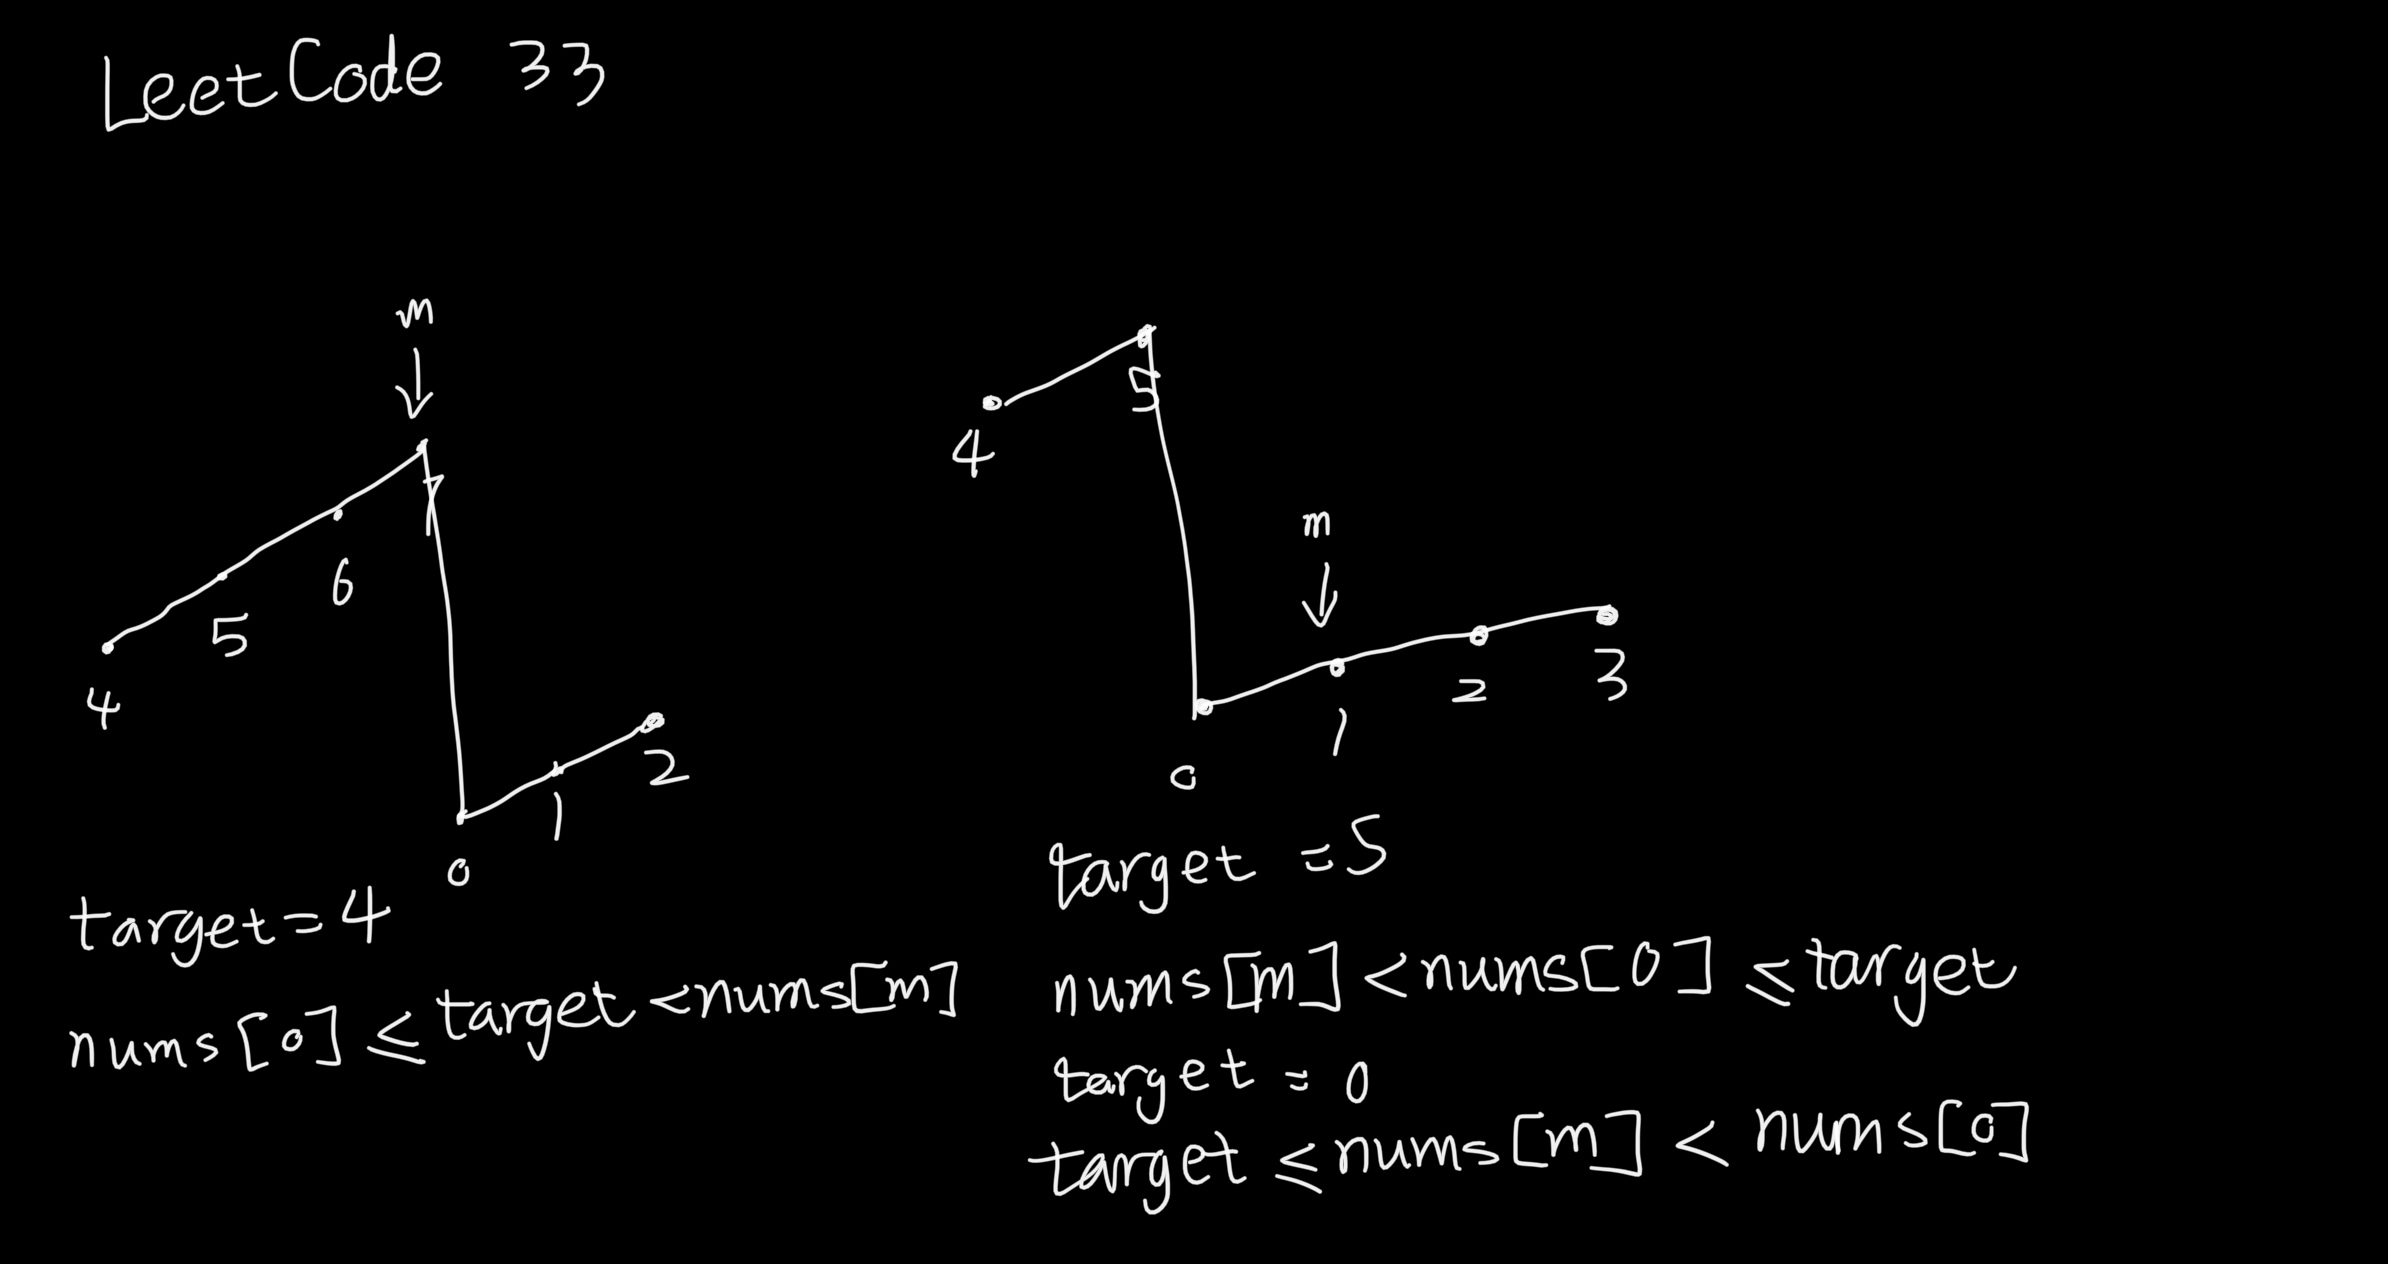 LeetCode 33
m
7
6
5
4
2
1
0
target=4
nums[0]≤target<nums[m]
5
4
m
3
2
1
0
target =5
nums[m]<nums[0]≤target
target = 0
target≤nums[m]<nums[0]